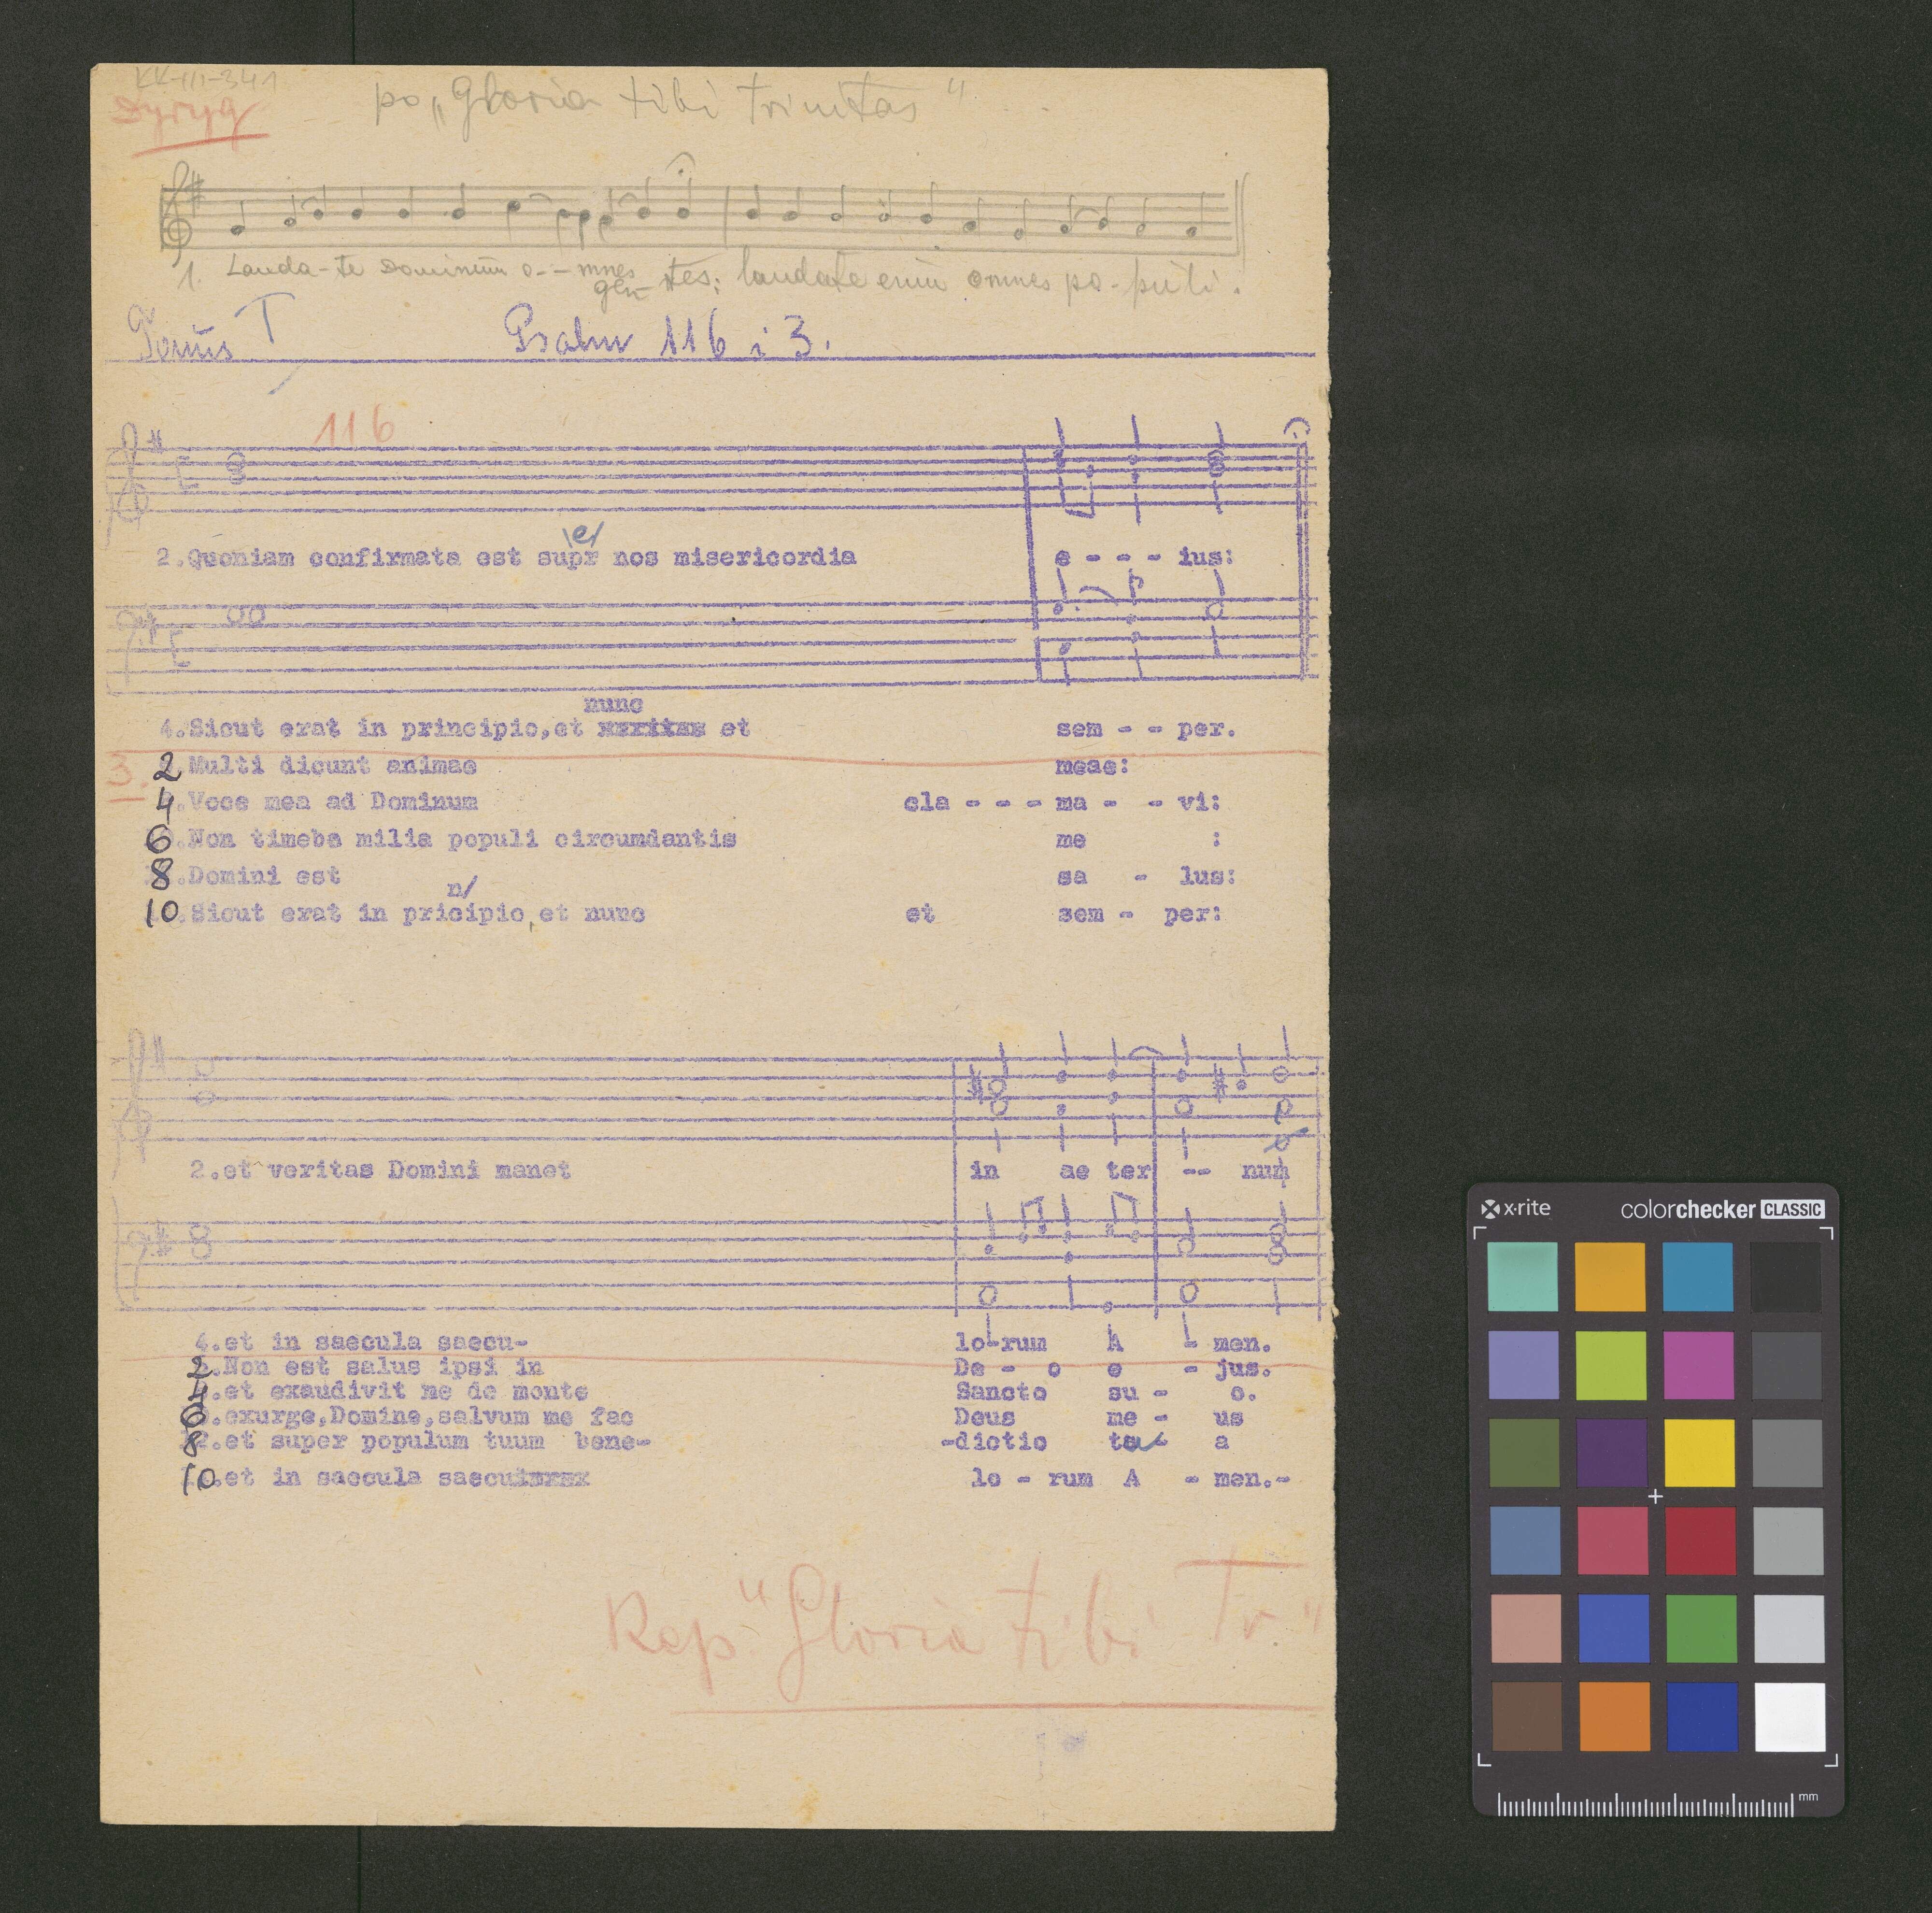 KK-III-341
Dyryg
po „Gloria tibi trinitas"
1. Lauda-te Dominum o--mnes gen-tes; laudate eum omnes po-puli.
Tonus I
Psalm 116 i 3.
116
2.Quoniam confirmata est supr nos misericordia e - - - ius:
e/
nunc
4.Sicut erat in principio,et xxritxx et sem - - per.
3.
2.Multi dicunt animae meae:
4.Voce mea ad Dominum cla - - - ma - - vi:
6.Non timebo milia populi circumdantis me :
8.Domini est sa - lus:
n/
10.Sicut erat in pricipio,et nunc et sem - per:
2.et veritas Domini manet in ae ter -- num
4.et in saecula saecu- lo-rum A - men.
2.Non est salus ipsi in De - o e - jus.
4.et exaudivit me de monte Sancto su - o.
6.exurge,Domine,salvum me fac Deus me - us
8.et super populum tuum bene- -dictio tu - a
10.et in saecula saecu lo - rum A - men.-
Rep "Gloria tibi Tr."
x·rite
colorchecker CLASSIC
mm